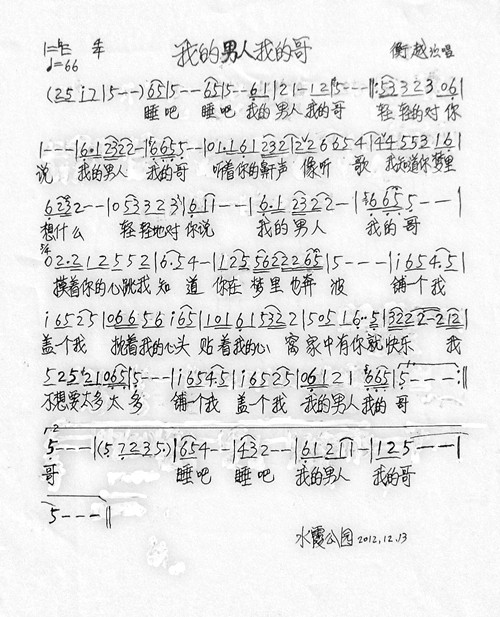 我的男人我的哥
衡越演唱
♩=66
(25i7|5---)|65|5--65|5--61|21-12|5---|:533323.06|
睡吧 睡吧 我的男人我的哥 轻轻的对你
1---|6.12322-|6655--|01.161232|2265 4|4455216|
说 我的男人 我的哥 听着你的鼾声 像听 歌 我知道你梦里
6232--|053323|611---|6.12322-|6655---|
想什么 轻轻地对你说 我的男人 我的哥
02.212552|6.54-|125562265|5---|i654.5|
摸着你的心跳我知道 你在梦里也奔波 铺一个我
i6525|066656i65|101615322|50516.5|3222-212|
盖一个我 枕着我的心头 贴着我的心窝 家中有你就快乐 我
52521065|5---|i6545|i6525|06121 665|5---:|
不想要太多太多 铺一个我 盖一个我 我的男人我的哥
5---|(57235.)|654--|432--|61211-|125---|
哥 睡吧 睡吧 我的男人 我的哥
5---‖
水霞公园2012.12.13